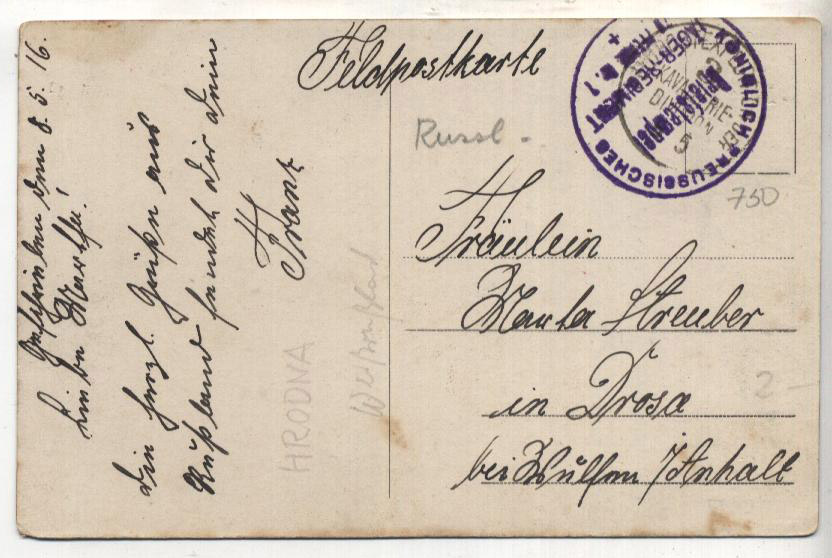 Geschrieben den 8.5.16.
Liebe Martha!
Die herzl. Grüße aus
Rußland sendet dir dein
Franz
HRODNA
Weißrußland
Feldpostkarte
Russl-
KÖNIGLICH PREUSSISCHES
JÄGER-REGIMENT
KAVALLERIE-
DIVISION
5
750
Fräulein
Marta Streuber
in Drosa
2-
bei Wulfen /Anhalt